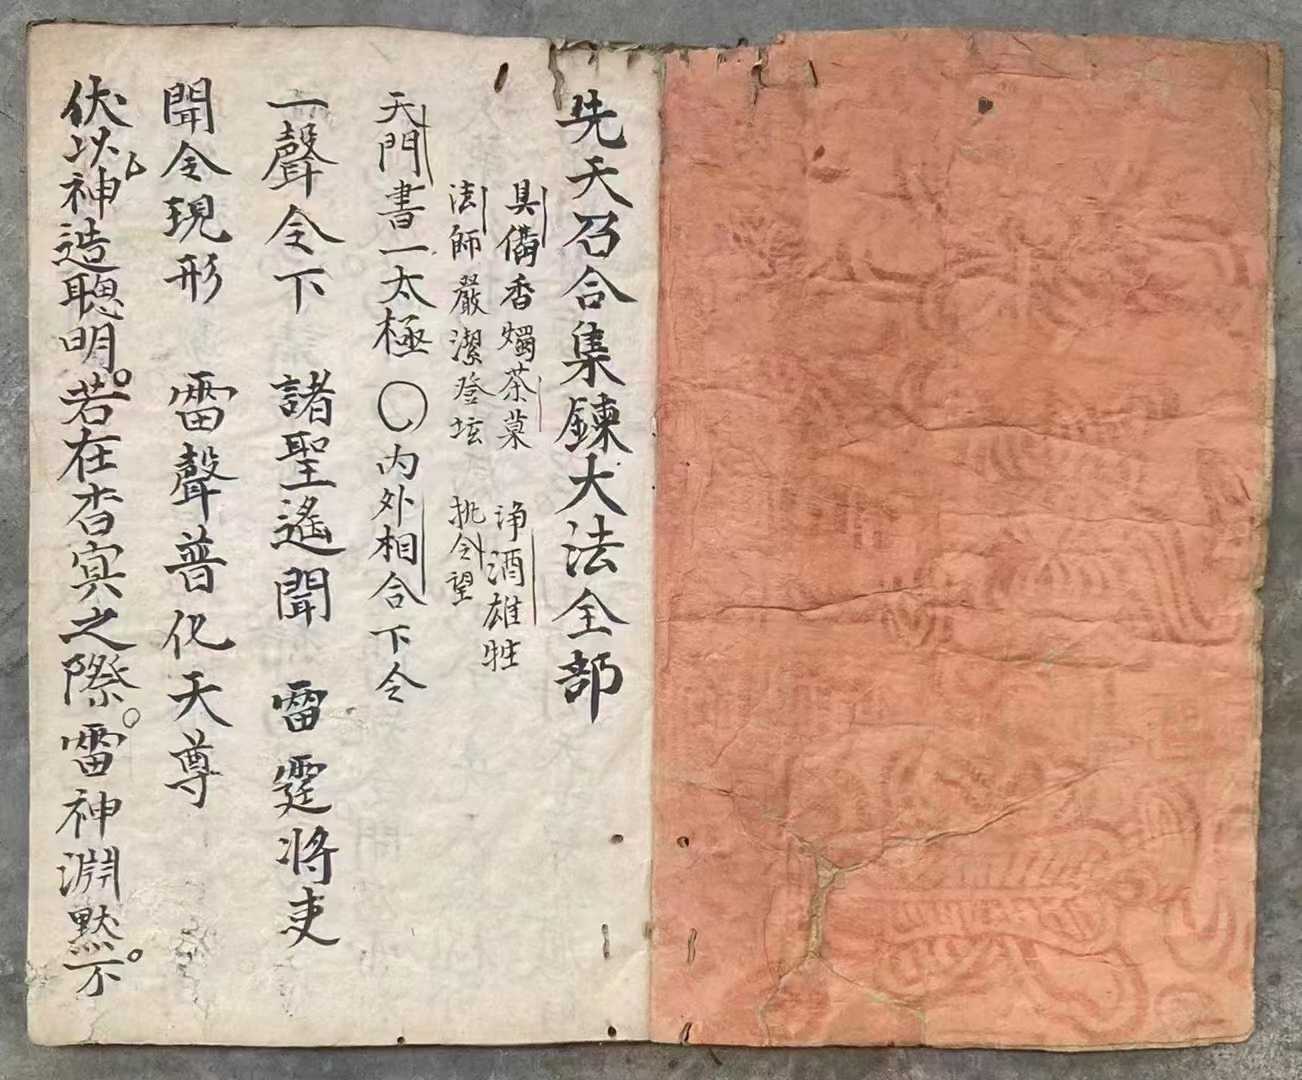 先天召合集鍊大法全部
具備香燭茶菓 淨酒雄牲
法師嚴潔登坛 挑令望
天門書一太極〇內外相合下令
一聲令下 諸聖遙聞 雷霆將吏
聞令現形 雷聲普化天尊
伏以神造聰明。若在杳冥之際。雷神淵默。不